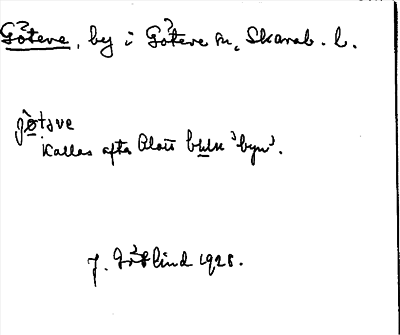 Göteve, by i Göteve sn, Skarab. l.
gøtəve
kallas ofta blott
J. Götlind 1928.